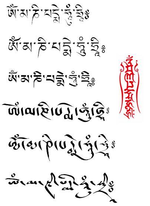 ༀ་མ་ཎི་པདྨེ་ཧཱུྃ་ཧྲཱིཿ
ༀ་མ་ཎི་པདྨེ་ཧཱུྃ་ཧྲཱིཿ
ༀ་མ་ཎི་པདྨེ་ཧཱུྃ་ཧྲཱིཿ
ༀ་མ་ཎི་པདྨེ་ཧཱུྃ་ཧྲཱིཿ
ༀ་མ་ཎི་པདྨེ་ཧཱུྃ་ཧྲཱིཿ
ༀ་མ་ཎི་པདྨེ་ཧཱུྃ་ཧྲཱིཿ